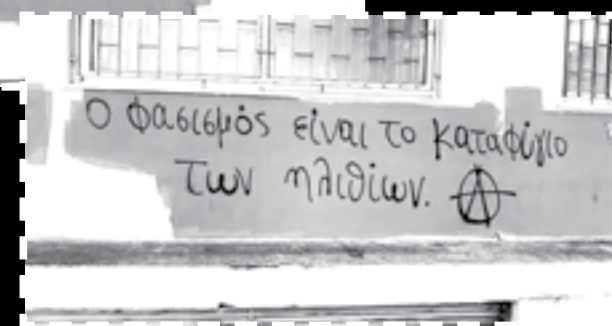 Ο φασισμός είναι το καταφίγιο
των ηλιθίων. Ⓐ